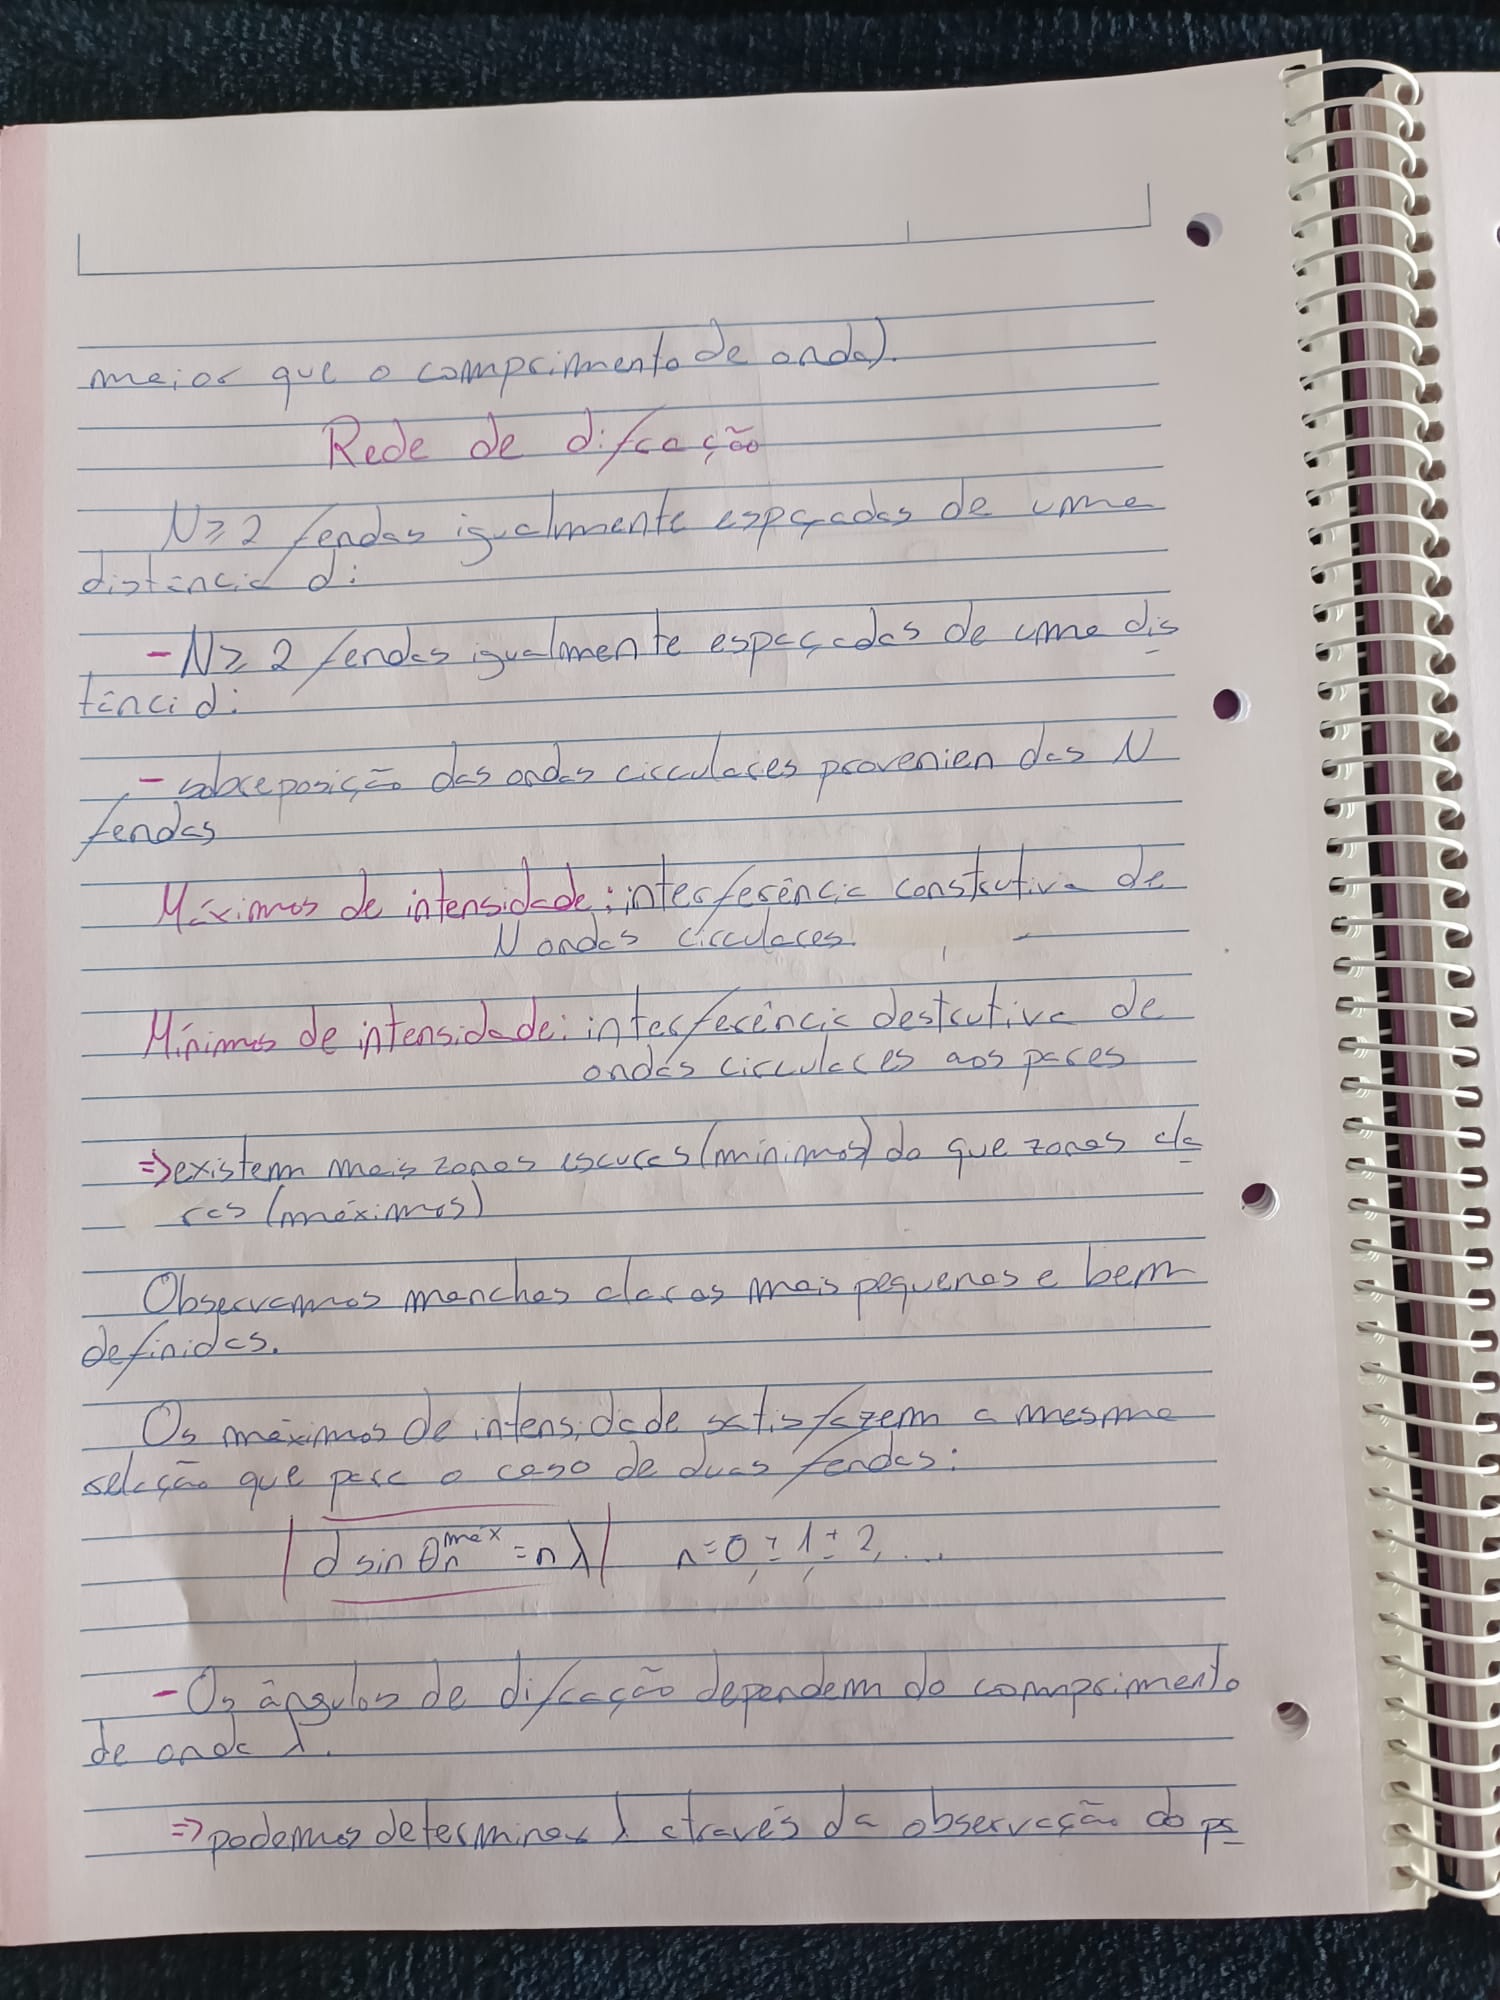 maior que o comprimento de onda).
Rede de difração
N≥2 fendas igualmente espaçadas de uma
distância d:
- N≥2 fendas igualmente espaçadas de uma dis
tânci d:
- sobreposição das ondas circulares provenien das N
fendas
Máximos de intensidade: interferência construtiva de
N ondas circulares.
Mínimos de intensidade: interferência destrutiva de
ondas circulares aos pares
⇒ existem mais zonas escuras (mínimos) do que zonas cla
ras (máximos)
Observamos manchas claras mais pequenas e bem
definidas.
Os máximos de intensidade satisfazem a mesma
relação que para o caso de duas fendas:
d sin θₙᵐᵃˣ = nλ n=0, ±1, ±2, ...
- Os ângulos de difração dependem do comprimento
de onda λ.
⇒ podemos determinar λ através da observação do pa